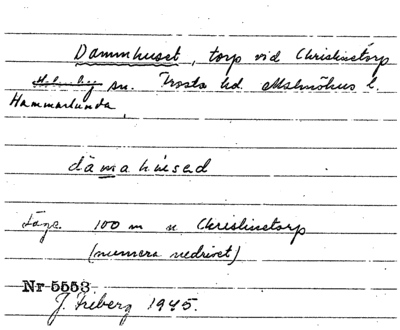 Dammhuset, torp vid Christinetorp
sn. Frosta hd. Malmöhus l.
Hammarlunda
dämahused
Läge. 100 m n. Christinetorp
(numera nedrivet)
Nr 5553
J. Friberg 1945.